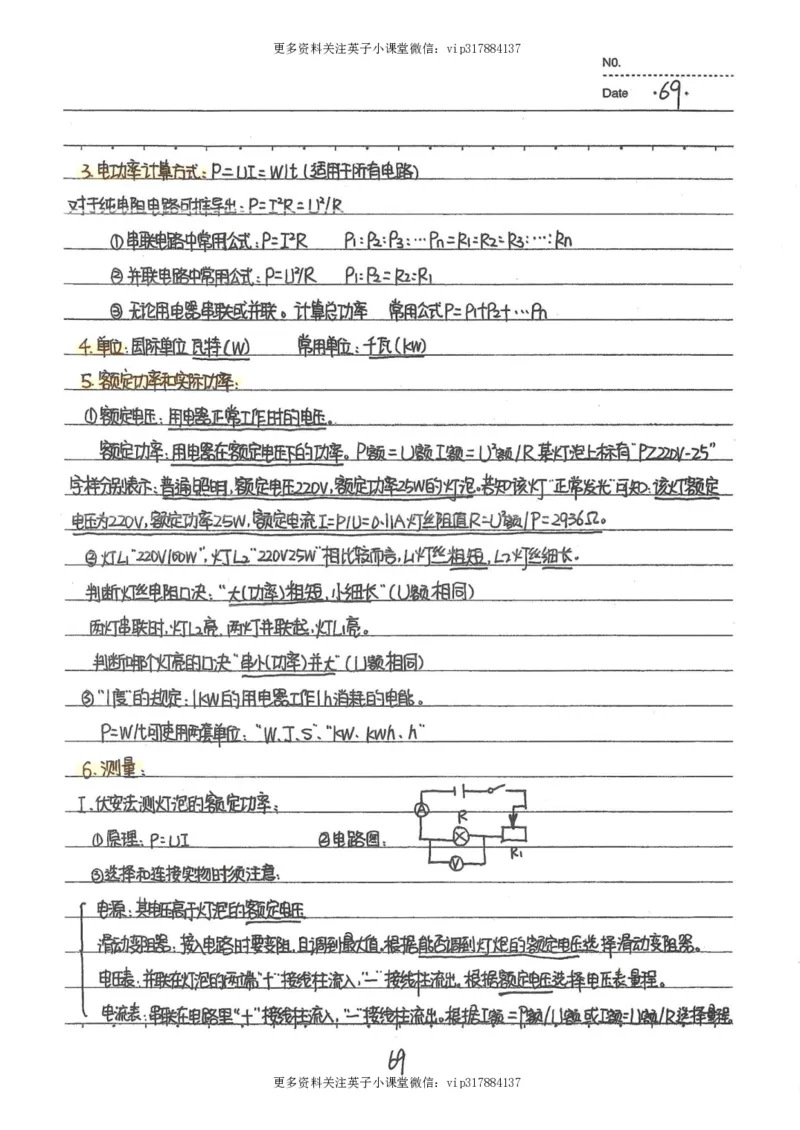 更多资料关注英子小课堂微信：vip317884137
NO.
Date ·69·
3.电功率计算方式：P=UI=W/t（适用于所有电路）
对于纯电阻电路可推导出：P=I²R=U²/R
①串联电路中常用公式：P=I²R P₁:P₂:P₃:…Pn=R₁=R₂:R₃:…:Rn
②并联电路中常用公式：P=U²/R P₁:P₂=R₂:R₁
③无论用电器串联或并联。计算总功率 常用公式P=P₁+P₂+…Pn
4.单位：国际单位 瓦特(W) 常用单位：千瓦(kW)
5.额定功率和实际功率：
①额定电压：用电器正常工作时的电压。
额定功率：用电器在额定电压下的功率。P额=U额I额=U²额/R某灯泡上标有“PZ220V-25”
字样分别表示：普通照明，额定电压220V，额定功率25W的灯泡。若知该灯“正常发光”可知：该灯额定
电压为220V，额定功率25W，额定电流I=P/U=0.11A灯丝阻值R=U²额/P=2936Ω。
②灯L₁“220V100W”，灯L₂“220V25W”相比较而言，L₁灯丝粗短，L₂灯丝细长。
判断灯丝电阻口决：“大(功率)粗短，小细长”（U额相同）
两灯串联时，灯L₂亮，两灯并联起，灯L₁亮。
判断哪个灯亮的口决“串小(功率)并大”（U额相同）
③“1度”的规定：1kW的用电器工作1h消耗的电能。
P=W/t可使用两套单位：“W、J、S”、“kW、kWh、h”
6.测量：
I.伏安法测灯泡的额定功率：
①原理：P=UI ②电路图：
A
R
V
R₁
③选择和连接实物时须注意：
电源：其电压高于灯泡的额定电压
滑动变阻器：接入电路时要变阻，且调到最大值。根据能否调到灯炮的额定电压选择滑动变阻器。
电压表：并联在灯泡的两端“十”接线柱流入，“一”接线柱流出。根据额定电压选择电压表量程。
电流表：串联在电路里“十”接线柱流入，“一”接线柱流出。根据I额=P额/U额或I额=U额/R选择量程。
69
更多资料关注英子小课堂微信：vip317884137